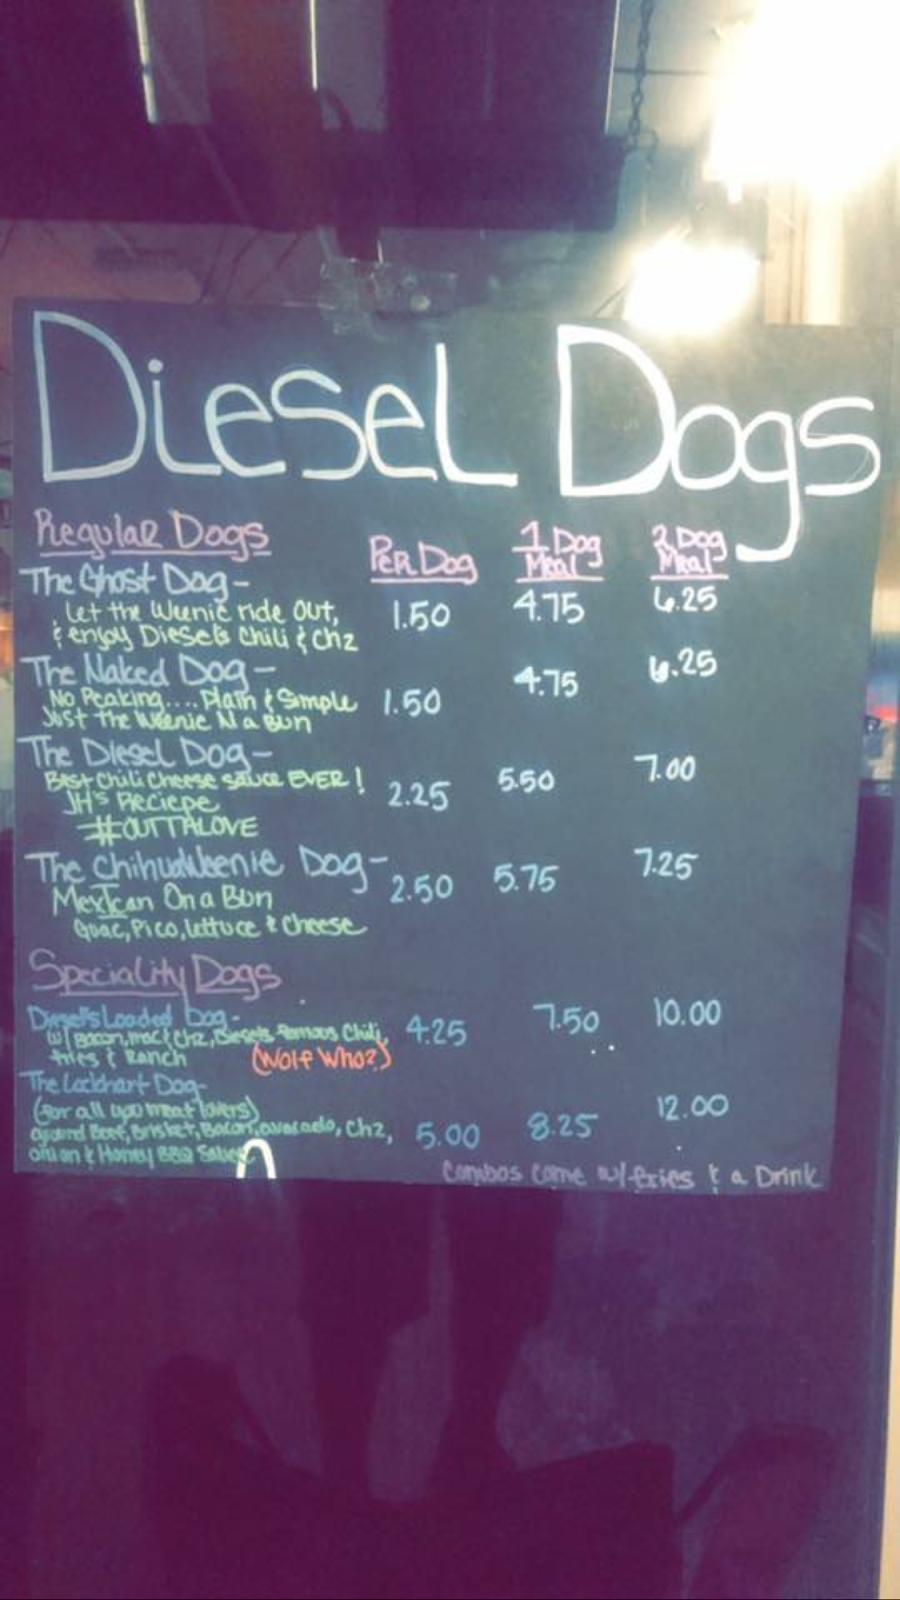 Diesel Dogs
Regular Dogs Per Dog 1 Dog Meal 2 Dog Meal
The Ghost Dog -
Let the Weenie ride out, 1.50 4.75 6.25
& enjoy Diesel's Chili & Chz
The Naked Dog -
No Peaking.... Plain & Simple 1.50 4.75 6.25
Just the Weenie N a Bun
The Diesel Dog -
Best Chili Cheese sauce EVER! 2.25 5.50 7.00
JH's Reciepe
#OUTTALOVE
The Chihuaweenie Dog - 2.50 5.75 7.25
Mexican On a Bun
Guac, Pico, lettuce & Cheese
Speciality Dogs
Diesel's Loaded Dog - 4.25 7.50 10.00
w/ Bacon, mac & chz, Diesels famous Chili,
fries & Ranch (Wolf Who?)
The Lockhart Dog -
(for all you meat lovers) 5.00 8.25 12.00
ground Beef, Brisket, Bacon, avocado, Chz,
onion & Honey BBQ Sauce
Combos come w/ fries & a Drink